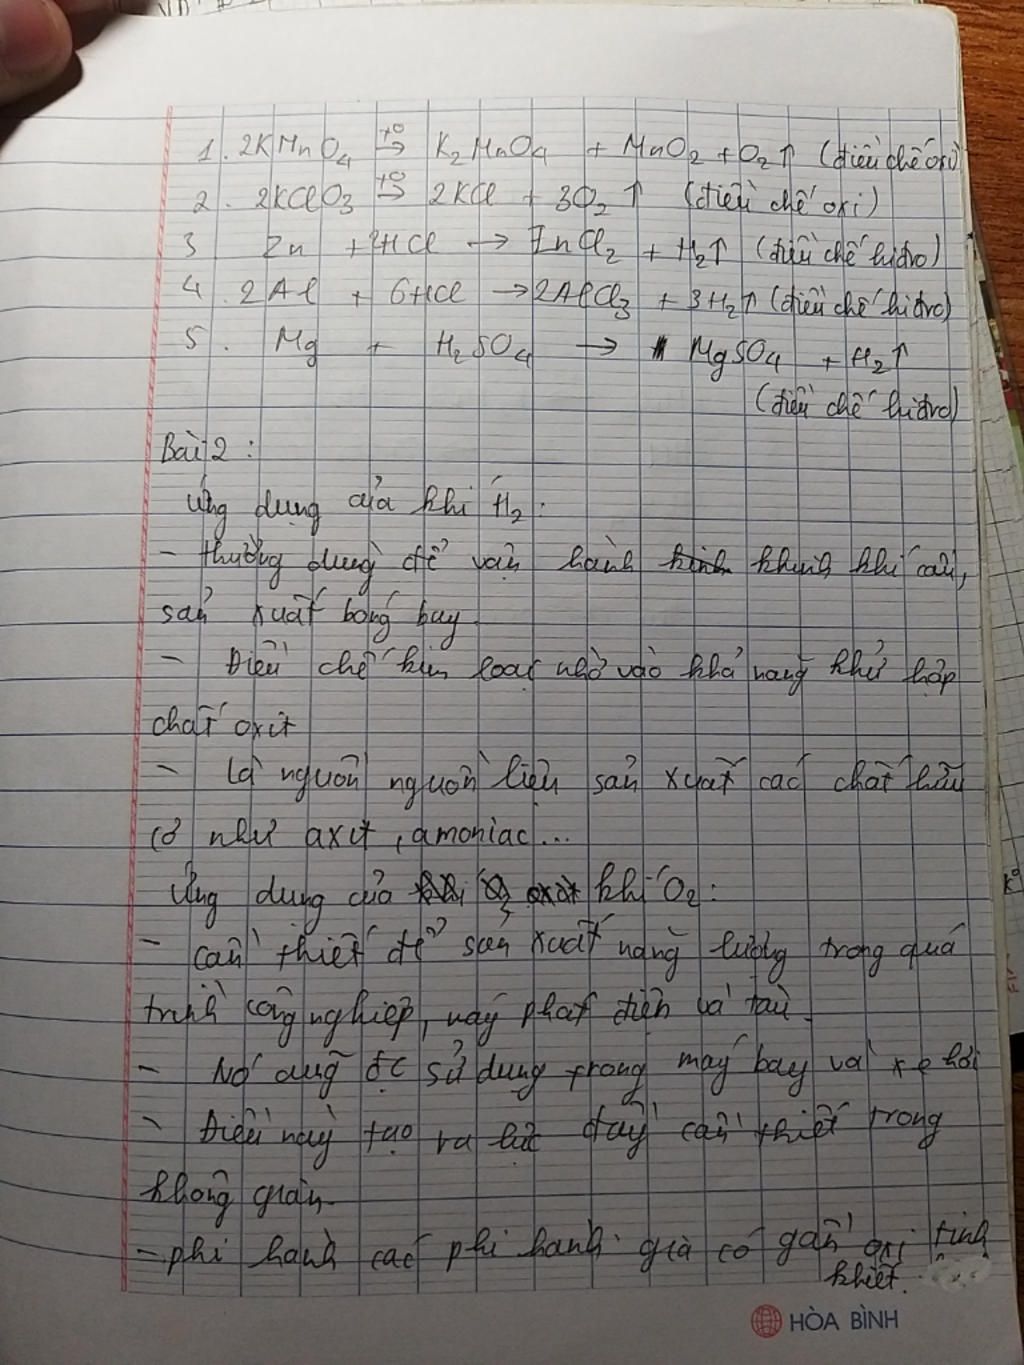 1. 2KMnO4 →t° K2MnO4 + MnO2 + O2↑ (điều chế oxi)
2. 2KClO3 →t° 2KCl + 3O2↑ (điều chế oxi)
3 Zn + 2HCl → ZnCl2 + H2↑ (điều chế hiđro)
4. 2Al + 6HCl → 2AlCl3 + 3H2↑ (điều chế hiđro)
5. Mg + H2SO4 → MgSO4 + H2↑
(điều chế hiđro)
Bài 2:
Ứng dụng của khí H2:
- thường dùng để vận hành khinh khí cầu,
sản xuất bóng bay.
- Điều chế kim loại nhờ vào khả năng khử hợp
chất oxit
- Là nguồn nguồn liệu sản xuất các chất hữu
cơ như axit, amoniac...
Ứng dụng của khí O2:
- Cần thiết để sản xuất năng lượng trong quá
trình công nghiệp, máy phát điện và tàu.
- Nó cũng đc sử dụng trong máy bay và xe hơi
- Điều này tạo ra lực đẩy cần thiết trong
không gian.
- phi hành các phi hành gia có gần oxi tinh
khiết.
HÒA BÌNH